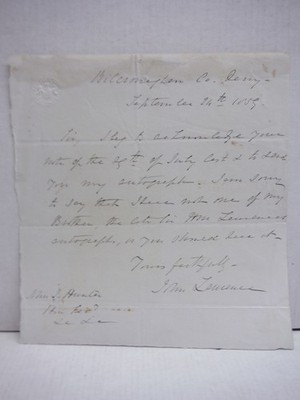 Co. Derry -
September 14th 1859.
Sir, I beg to acknowledge your
note of the of July last & to send
you my autograph - I am sorry
to say that I have not one of my
Brother the late Sir Henry Lawrence's
autographs, or you should have it -
Yours faithfully -
John Lawrence
Hunter
&c &c